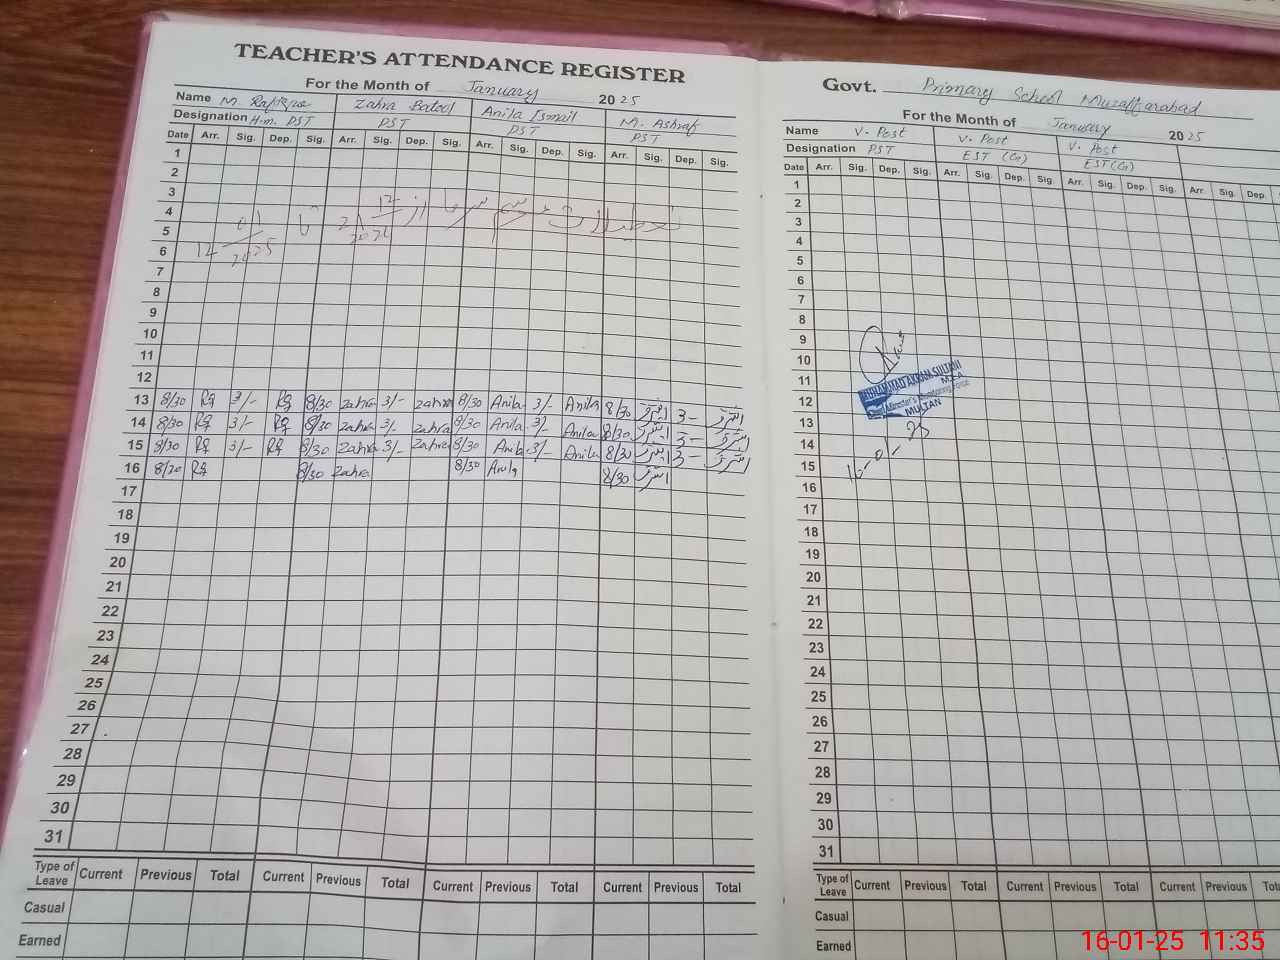 TEACHER'S ATTENDANCE REGISTER
For the Month of January 2025
Name M. Rafique Zahra Batool Anila Ismail M. Ashraf
Designation H.m. PST PST PST PST
Date Arr. Sig. Dep. Sig. Arr. Sig. Dep. Sig. Arr. Sig. Dep. Sig. Arr. Sig. Dep. Sig.
1
2
3
4
5
6
تعطیلات موسم سرما از 21-12-2024 تا 12-01-2025
7
8
9
10
11
12
13 8/30 RQ 3/- RQ 8/30 Zahra 3/- Zahra 8/30 Anila 3/- Anila 8/30 اشرف 3- اشرف
14 8/30 RQ 3/- RQ 8/30 Zahra 3/- Zahra 8/30 Anila 3/- Anila 8/30 اشرف 3- اشرف
15 8/30 RQ 3/- RQ 8/30 Zahra 3/- Zahra 8/30 Anila 3/- Anila 8/30 اشرف 3- اشرف
16 8/30 RQ 8/30 Zahra 8/30 Anila 8/30 اشرف
17
18
19
20
21
22
23
24
25
26
27
28
29
30
31
Type of Leave Current Previous Total Current Previous Total Current Previous Total Current Previous Total
Casual
Earned
Govt. Primary School Muzaffarabad
For the Month of January 2025
Name V. Post V. Post V. Post
Designation PST EST (G) EST (G)
Date Arr. Sig. Dep. Sig. Arr. Sig. Dep. Sig. Arr. Sig. Dep. Sig. Arr. Sig. Dep.
1
2
3
4
5
6
7
8
9
10
11
12
13
14
15
16
17
18
19
20
21
22
23
24
25
26
27
28
29
30
31
MUHAMMAD AKRAM SULTANI
M.E.A
Minister's Monitoring Force
MULTAN
16-01-25
Type of Leave Current Previous Total Current Previous Total Current Previous Total
Casual
Earned
16-01-25 11:35